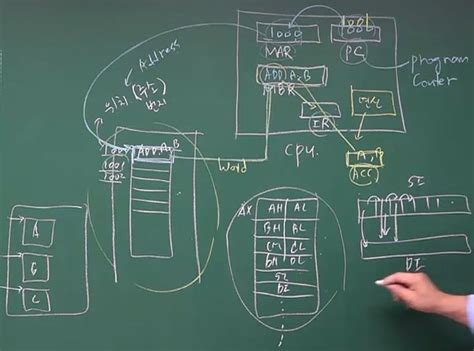 1000
MAR
PC
Program
Counter
ADD A,B
MBR
IR
CPU
A, B
ACC
Address
Word
ADD A,B
1000
1001
1002
A
B
C
AX
AH AL
BH BL
CH CL
DH DL
SI
DI
SI
DI